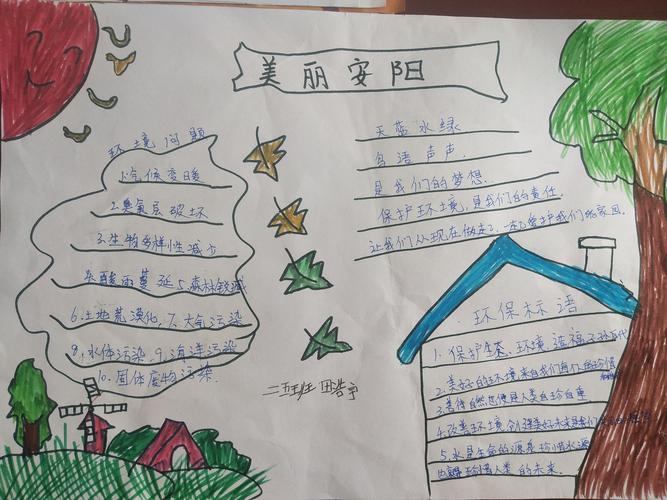 美丽安阳
环境问题
1.气候变暖
2.臭氧层破坏
3.生物多样性减少
4.酸雨蔓延 5.森林锐减
6.土地荒漠化, 7.大气污染
8.水体污染, 9.海洋污染
10.固体废物污染.
天蓝水绿
鸟语声声
是我们的梦想.
保护环境,是我们的责任.
让我们从现在做起,一起爱护我们的家园.
二五班 田浩宇
环保标语
1.保护生态环境,造福子孙后代
2.美好的环境来自我们每个人的珍惜
3.善待自然也便是人类自珍自重
4.改善环境,创造美好未来是我们
5.水是生命的源泉 珍惜水源
也就是珍惜人类的未来.